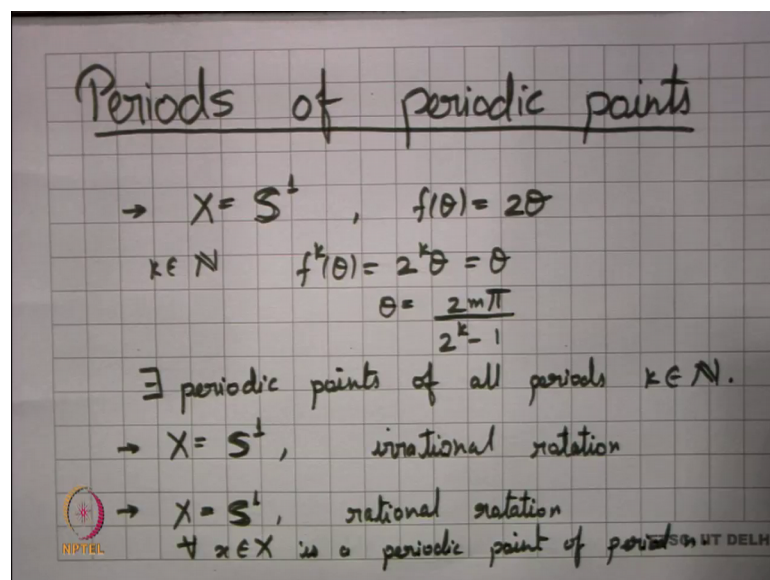 Periods of periodic points
→ X = S¹ , f(θ) = 2θ
k ∈ ℕ fᵏ(θ) = 2ᵏθ = θ
θ = 2mπ / 2ᵏ - 1
∃ periodic points of all periods k ∈ ℕ.
→ X = S¹, irrational rotation
→ X = S¹, rational rotation
∀ x ∈ X is a periodic point of period n.
NPTEL
IIT DELH